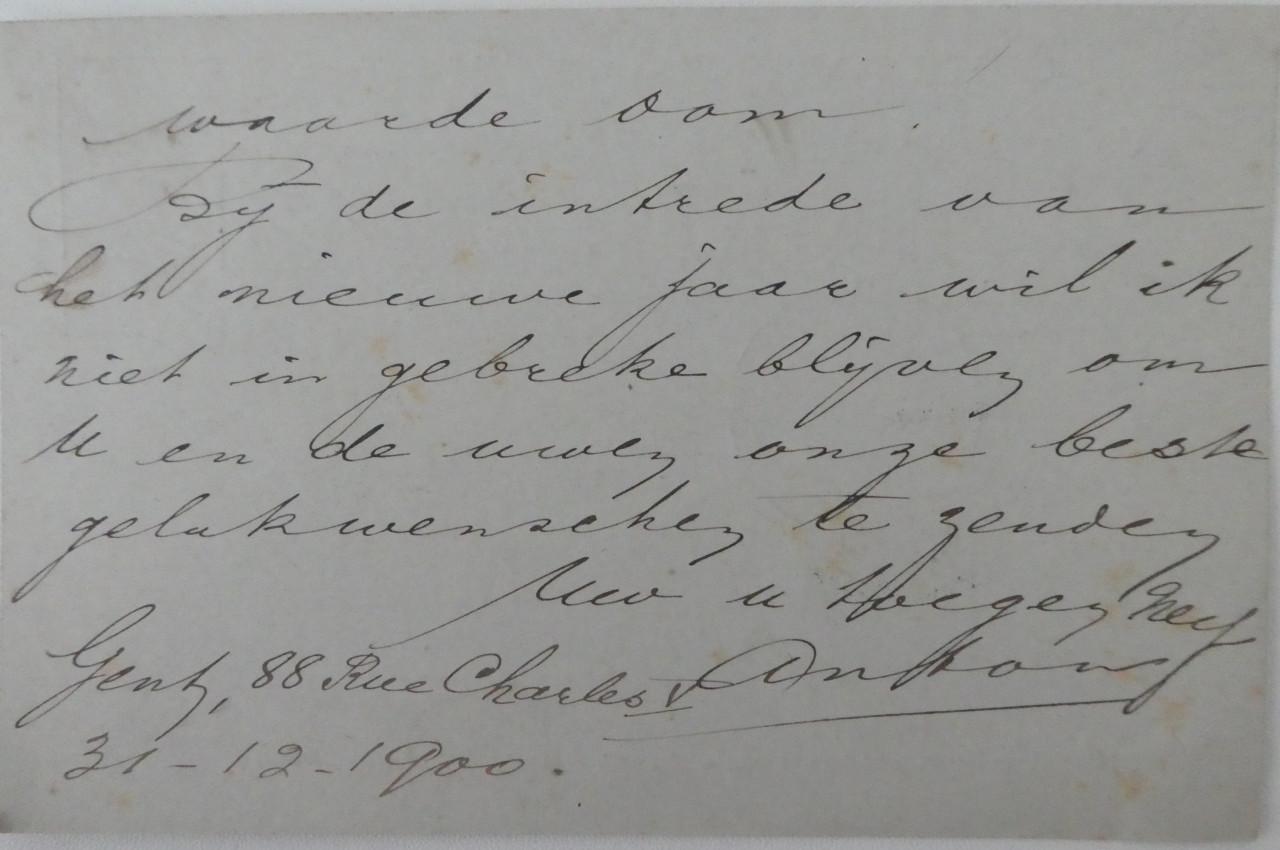 waarde oom.
Bij de intrede van
het nieuwe jaar wil ik
niet in gebreke blijven om
U en de uwen onze beste
gelukwenschen te zenden
Uw u toegen neef
Gent, 88 Rue Charles V Anton
31-12-1900.